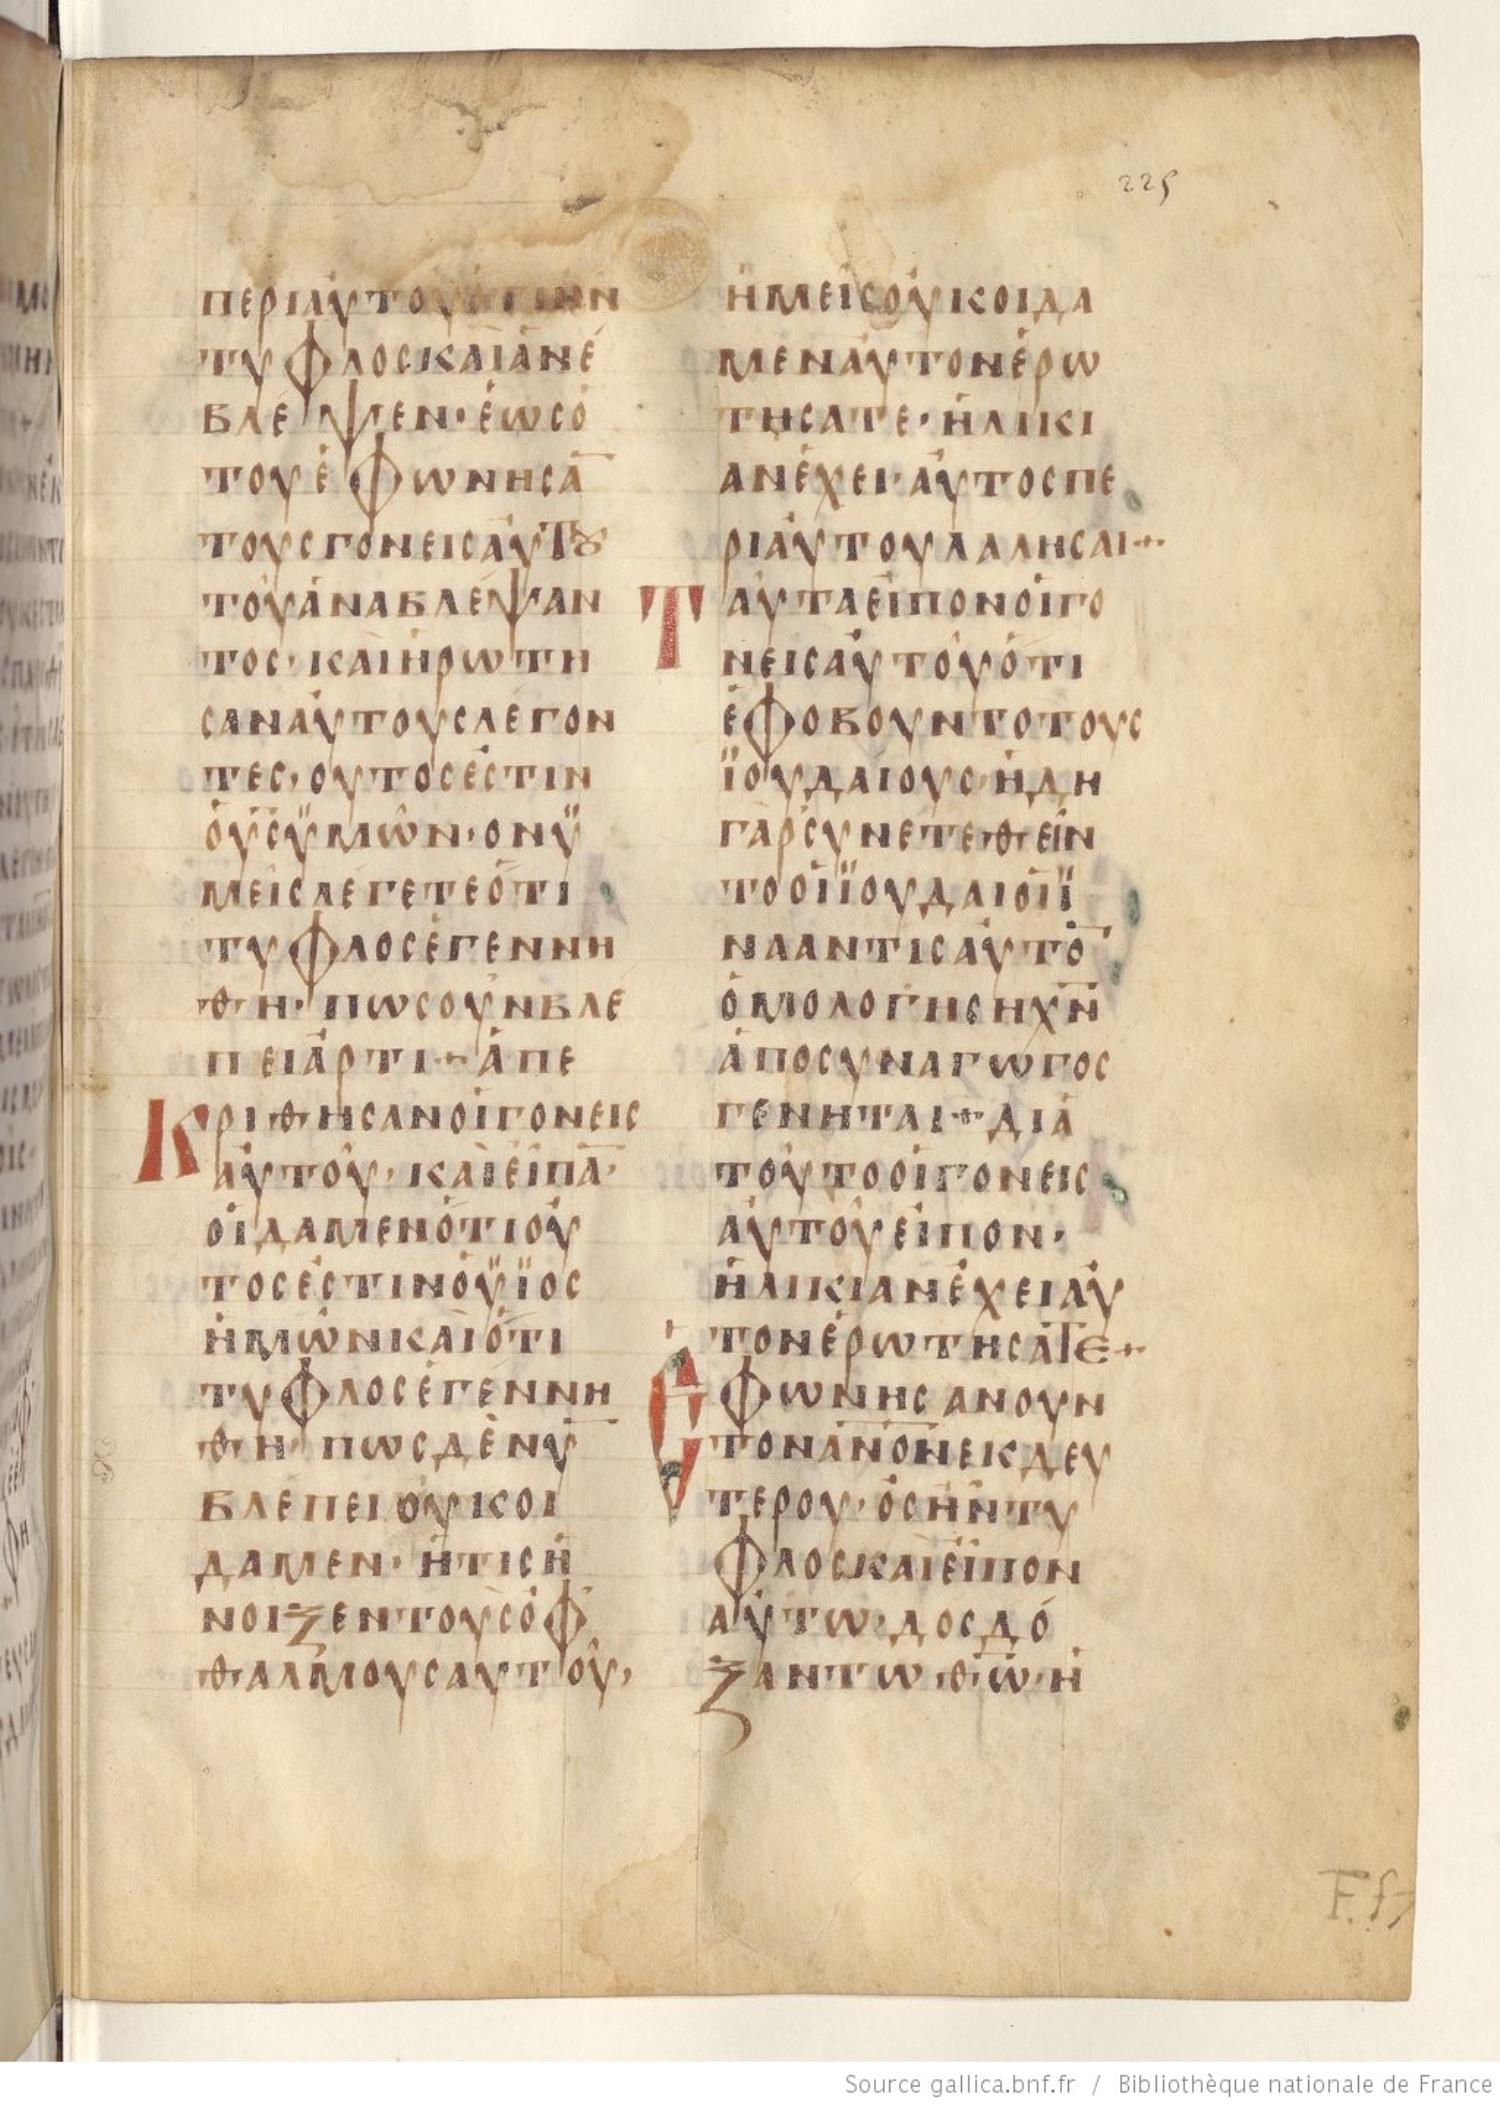 225
ΠΕΡΙΑΥΤΟΥΟΤΙΗΝ
ΤΥΦΛΟΣΚΑΙΑΝΕ
ΒΛΕΨΕΝ·ΕΩΣΟ
ΤΟΥΕΦΩΝΗΣΑ̅
ΤΟΥΣΓΟΝΕΙΣΑΥΤȢ
ΤΟΥΑΝΑΒΛΕΨΑΝ
ΤΟΣ·ΚΑΙΗΡΩΤΗ
ΣΑΝΑΥΤΟΥΣΛΕΓΟΝ
ΤΕΣ·ΟΥΤΟΣΕΣΤΙΝ
ΟΥ̅Σ̅ΫΜΩΝ·ΟΝΫ
ΜΕΙΣΛΕΓΕΤΕΟΤΙ
ΤΥΦΛΟΣΕΓΕΝΝΗ
ΘΗ·ΠΩΣΟΥΝΒΛΕ
ΠΕΙΑΡΤΙ+ΑΠΕ
ΚΡΙΘΗΣΑΝΟΙΓΟΝΕΙΣ
ΑΥΤΟΥ·ΚΑΙΕΙΠΑ̅·
ΟΙΔΑΜΕΝΟΤΙΟΥ
ΤΟΣΕΣΤΙΝΟΫΪΟΣ
ΗΜΩΝΚΑΙΟΤΙ
ΤΥΦΛΟΣΕΓΕΝΝΗ
ΘΗ·ΠΩΣΔΕΝΥ̅
ΒΛΕΠΕΙΟΥΚΟΙ
ΔΑΜΕΝ·ΗΤΙΣΗ
ΝΟΙΞΕΝΤΟΥΣΟΦ
ΘΑΛΜΟΥΣΑΥΤΟΥ,
ΗΜΕΙΣΟΥΚΟΙΔΑ
ΜΕΝΑΥΤΟΝΕΡΩ
ΤΗΣΑΤΕ·ΗΛΙΚΙ
ΑΝΕΧΕΙ·ΑΥΤΟΣΠΕ
ΡΙΑΥΤΟΥΛΑΛΗΣΑΙ+
ΤΑΥΤΑΕΙΠΟΝΟΙΓΟ
ΝΕΙΣΑΥΤΟΥΟΤΙ
ΕΦΟΒΟΥΝΤΟΤΟΥΣ
ΪΟΥΔΑΙΟΥΣ·ΗΔΗ
ΓΑΡΣΥΝΕΤΕΘΕΙΝ
ΤΟΟΙΪΟΥΔΑΙΟΙΪ
ΝΑΑΝΤΙΣΑΥΤΟ̅
ΟΜΟΛΟΓΗΣΗΧ̅Ν̅
ΑΠΟΣΥΝΑΓΩΓΟΣ
ΓΕΝΗΤΑΙ+ΔΙΑ
ΤΟΥΤΟΟΙΓΟΝΕΙΣ
ΑΥΤΟΥΕΙΠΟΝ·
ΗΛΙΚΙΑΝΕΧΕΙΑΥ
ΤΟΝΕΡΩΤΗΣΑΤΕ+
ΕΦΩΝΗΣΑΝΟΥΝ
ΤΟΝΑ̅Ν̅Ο̅Ν̅ΕΚΔΕΥ
ΤΕΡΟΥ·ΟΣΗΝΤΥ
ΦΛΟΣΚΑΙΕΙΠΟΝ
ΑΥΤΩ·ΔΟΣΔΟ
ΞΑΝΤΩ·Θ̅Ω̅·Η
F.f7
Source gallica.bnf.fr / Bibliothèque nationale de France